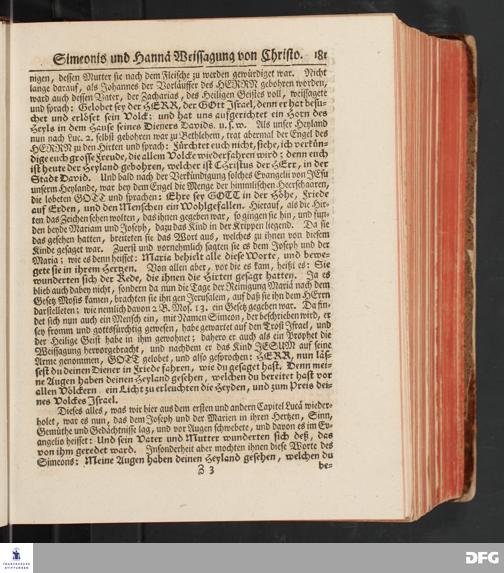 Simeonis und Hannä Weissagung von Christo. 181
nigen, dessen Mutter sie nach dem Fleische zu werden gewürdiget war. Nicht
lange darauf, als Johannes der Vorläuffer des HERRN gebohren worden,
ward auch dessen Vater, der Zacharias, des Heiligen Geistes voll, weissagete
und sprach: Gelobet sey der HERR, der GOtt Israel, denn er hat besu-
chet und erlöset sein Volck; und hat uns aufgerichtet ein Horn des
Heyls in dem Hause seines Dieners Davids. u. s. w. Als unser Heyland
nun nach Luc. 2. selbst gebohren war zu Bethlehem, trat abermal der Engel des
HERRN zu den Hirten und sprach: Fürchtet euch nicht, siehe, ich verkün-
dige euch grosse Freude, die allem Volcke wiederfahren wird; denn euch
ist heute der Heyland gebohren, welcher ist Christus der HErr, in der
Stadt David. Und bald nach der Verkündigung solches Evangelii von JEsu
unserm Heylande, war bey dem Engel die Menge der himmlischen Heerschaaren,
die lobeten GOTT und sprachen: Ehre sey GOTT in der Höhe, Friede
auf Erden, und den Menschen ein Wohlgefallen. Hierauf, als die Hir-
ten das Zeichen sehen wolten, das ihnen gegeben war, so gingen sie hin, und fun-
den beyde Mariam und Joseph, dazu das Kind in der Krippen liegend. Da sie
das gesehen hatten, breiteten sie das Wort aus, welches zu ihnen von diesem
Kinde gesaget war. Zuerst und vornehmlich sagten sie es dem Joseph und der
Maria; wie es denn heisset: Maria behielt alle diese Worte, und bewe-
gete sie in ihrem Hertzen. Von allen aber, vor die es kam, heißt es: Sie
wunderten sich der Rede, die ihnen die Hirten gesagt hatten. Ja es
blieb auch dabey nicht, sondern da nun die Tage der Reinigung Mariä nach dem
Gesetz Mosis kamen, brachten sie ihn gen Jerusalem, auf daß sie ihn dem HErrn
darstelleten; wie nemlich davon 2. B. Mos. 13. ein Gesetz gegeben war. Da fin-
det sich nun auch ein Mensch ein, mit Namen Simeon, der beschrieben wird, er
sey fromm und gottsfürchtig gewesen, habe gewartet auf den Trost Israel, und
der Heilige Geist habe in ihm gewohnet; dahero er auch als ein Prophet die
Weissagung hervorgebracht, und nachdem er das Kind JESUM auf seine
Arme genommen, GOTT gelobet, und also gesprochen: HERR, nun läs-
sest du deinen Diener in Friede fahren, wie du gesaget hast. Denn mei-
ne Augen haben deinen Heyland gesehen, welchen du bereitet hast vor
allen Völckern. ein Licht zu erleuchten die Heyden, und zum Preis dei-
nes Volckes Israel.
Dieses alles, was wir hier aus dem ersten und andern Capitel Lucä wieder-
holet, war es nun, das dem Joseph und der Marien in ihren Hertzen, Sinn,
Gemüthe und Gedächtnisse lag, und vor Augen schwebete, und davon es im Ev-
angelio heisset: Und sein Vater und Mutter wunderten sich deß, das
von ihm geredet ward. Insonderheit aber mochten ihnen diese Worte des
Simeons: Meine Augen haben deinen Heyland gesehen, welchen du
Z 3 be-
FRANCKESCHE
STIFTUNGEN
DFG